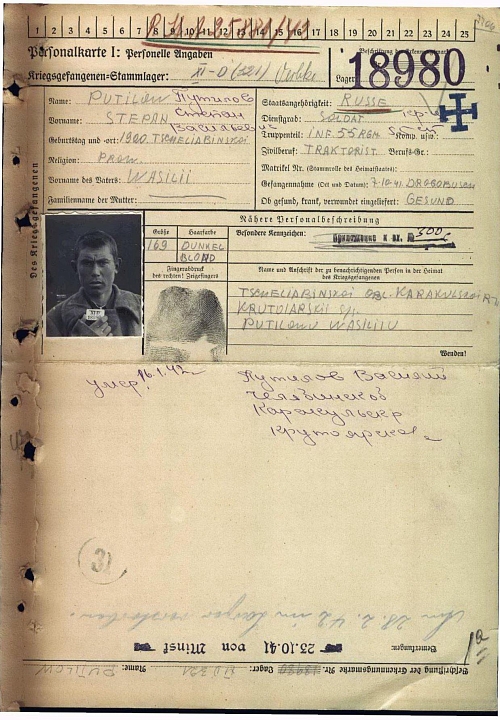 1 2 3 4 5 6 7 8 9 10 11 12 13 14 15 16 17 18 19 20 21 22 23 24 25
Personalkarte I: Personelle Angaben
Kriegsgefangenen-Stammlager: XI-D (321)
Lager:
18980
Des Kriegsgefangenen
Name: PUTILOW Путилов
Vorname: STEPAN Степан
Васильевич
Geburtstag und -ort: 1920. TSCHELIABINSKOI
Religion: PROW.
Vorname des Vaters: WASILII
Familienname der Mutter:
Staatsangehörigkeit: RUSSE
Dienstgrad: SOLDAT
Truppenteil: INF. 55 RGM. Komp. usw.:
Zivilberuf: TRAKTORIST. Berufs-Gr.:
Matrikel Nr. (Stammrolle des Heimatstaates):
Gefangennahme (Ort und Datum): 7.10.41. DROGOBUSCH
Ob gesund, krank, verwundet eingeliefert: GESUND
Nähere Personalbeschreibung
Größe Haarfarbe
169 DUNKEL
BLOND
Besondere Kennzeichen:
Fingerabdruck
des rechten! Zeigefingers
Name und Anschrift der zu benachrichtigenden Person in der Heimat
des Kriegsgefangenen
TSCHELIABINSKOI OBL. KARAKULSKOI
KRUTOIARSKII S/S.
PUTILOWU WASILIIU
Wenden!
умер. 16.1.42. Путилов Василий
Челябинской
Каракульскер
Крутоярско
31
Am 28.2.42 im Lager verstorben.
Bemerkungen:
23.10.41 von Minsk
Beschriftung der Erkennungsmarke Nr. Lager: Name: PUTILOW